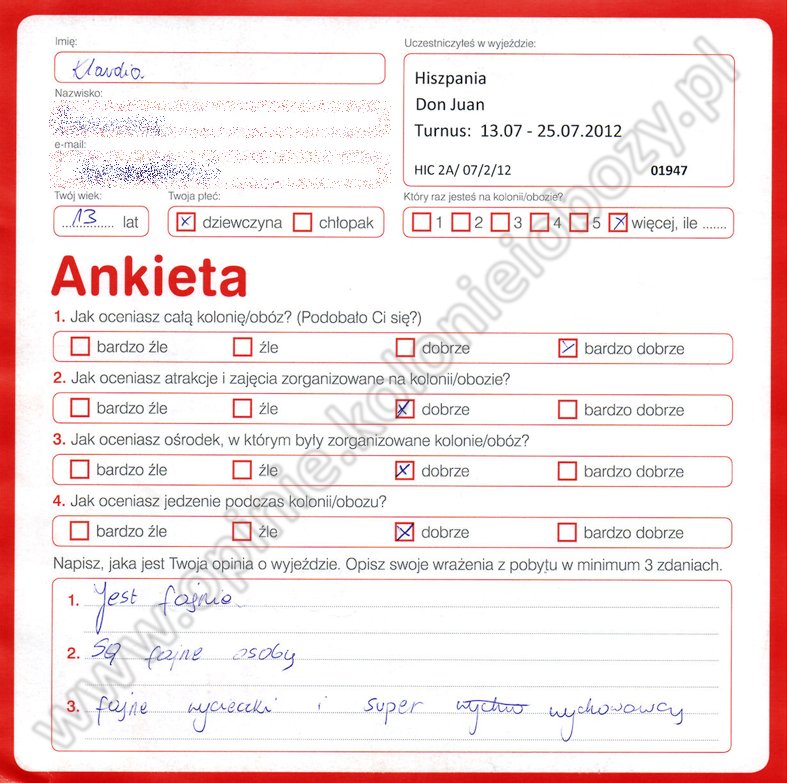 Imię:
Klaudia
Uczestniczyłeś w wyjeździe:
Hiszpania
Don Juan
Turnus: 13.07 - 25.07.2012
HIC 2A/ 07/2/12 01947
Nazwisko:
e-mail:
Twój wiek:
13 lat
Twoja płeć:
dziewczyna chłopak
Który raz jesteś na kolonii/obozie?
1 2 3 4 5 więcej, ile .......
Ankieta
1. Jak oceniasz całą kolonię/obóz? (Podobało Ci się?)
bardzo źle źle dobrze bardzo dobrze
2. Jak oceniasz atrakcje i zajęcia zorganizowane na kolonii/obozie?
bardzo źle źle dobrze bardzo dobrze
3. Jak oceniasz ośrodek, w którym były zorganizowane kolonie/obóz?
bardzo źle źle dobrze bardzo dobrze
4. Jak oceniasz jedzenie podczas kolonii/obozu?
bardzo źle źle dobrze bardzo dobrze
Napisz, jaka jest Twoja opinia o wyjeździe. Opisz swoje wrażenia z pobytu w minimum 3 zdaniach.
1. Jest fajnie.
2. Są fajne osoby
3. fajne wycieczki i super wychowawcy
www.opinie.kolonieiobozy.pl